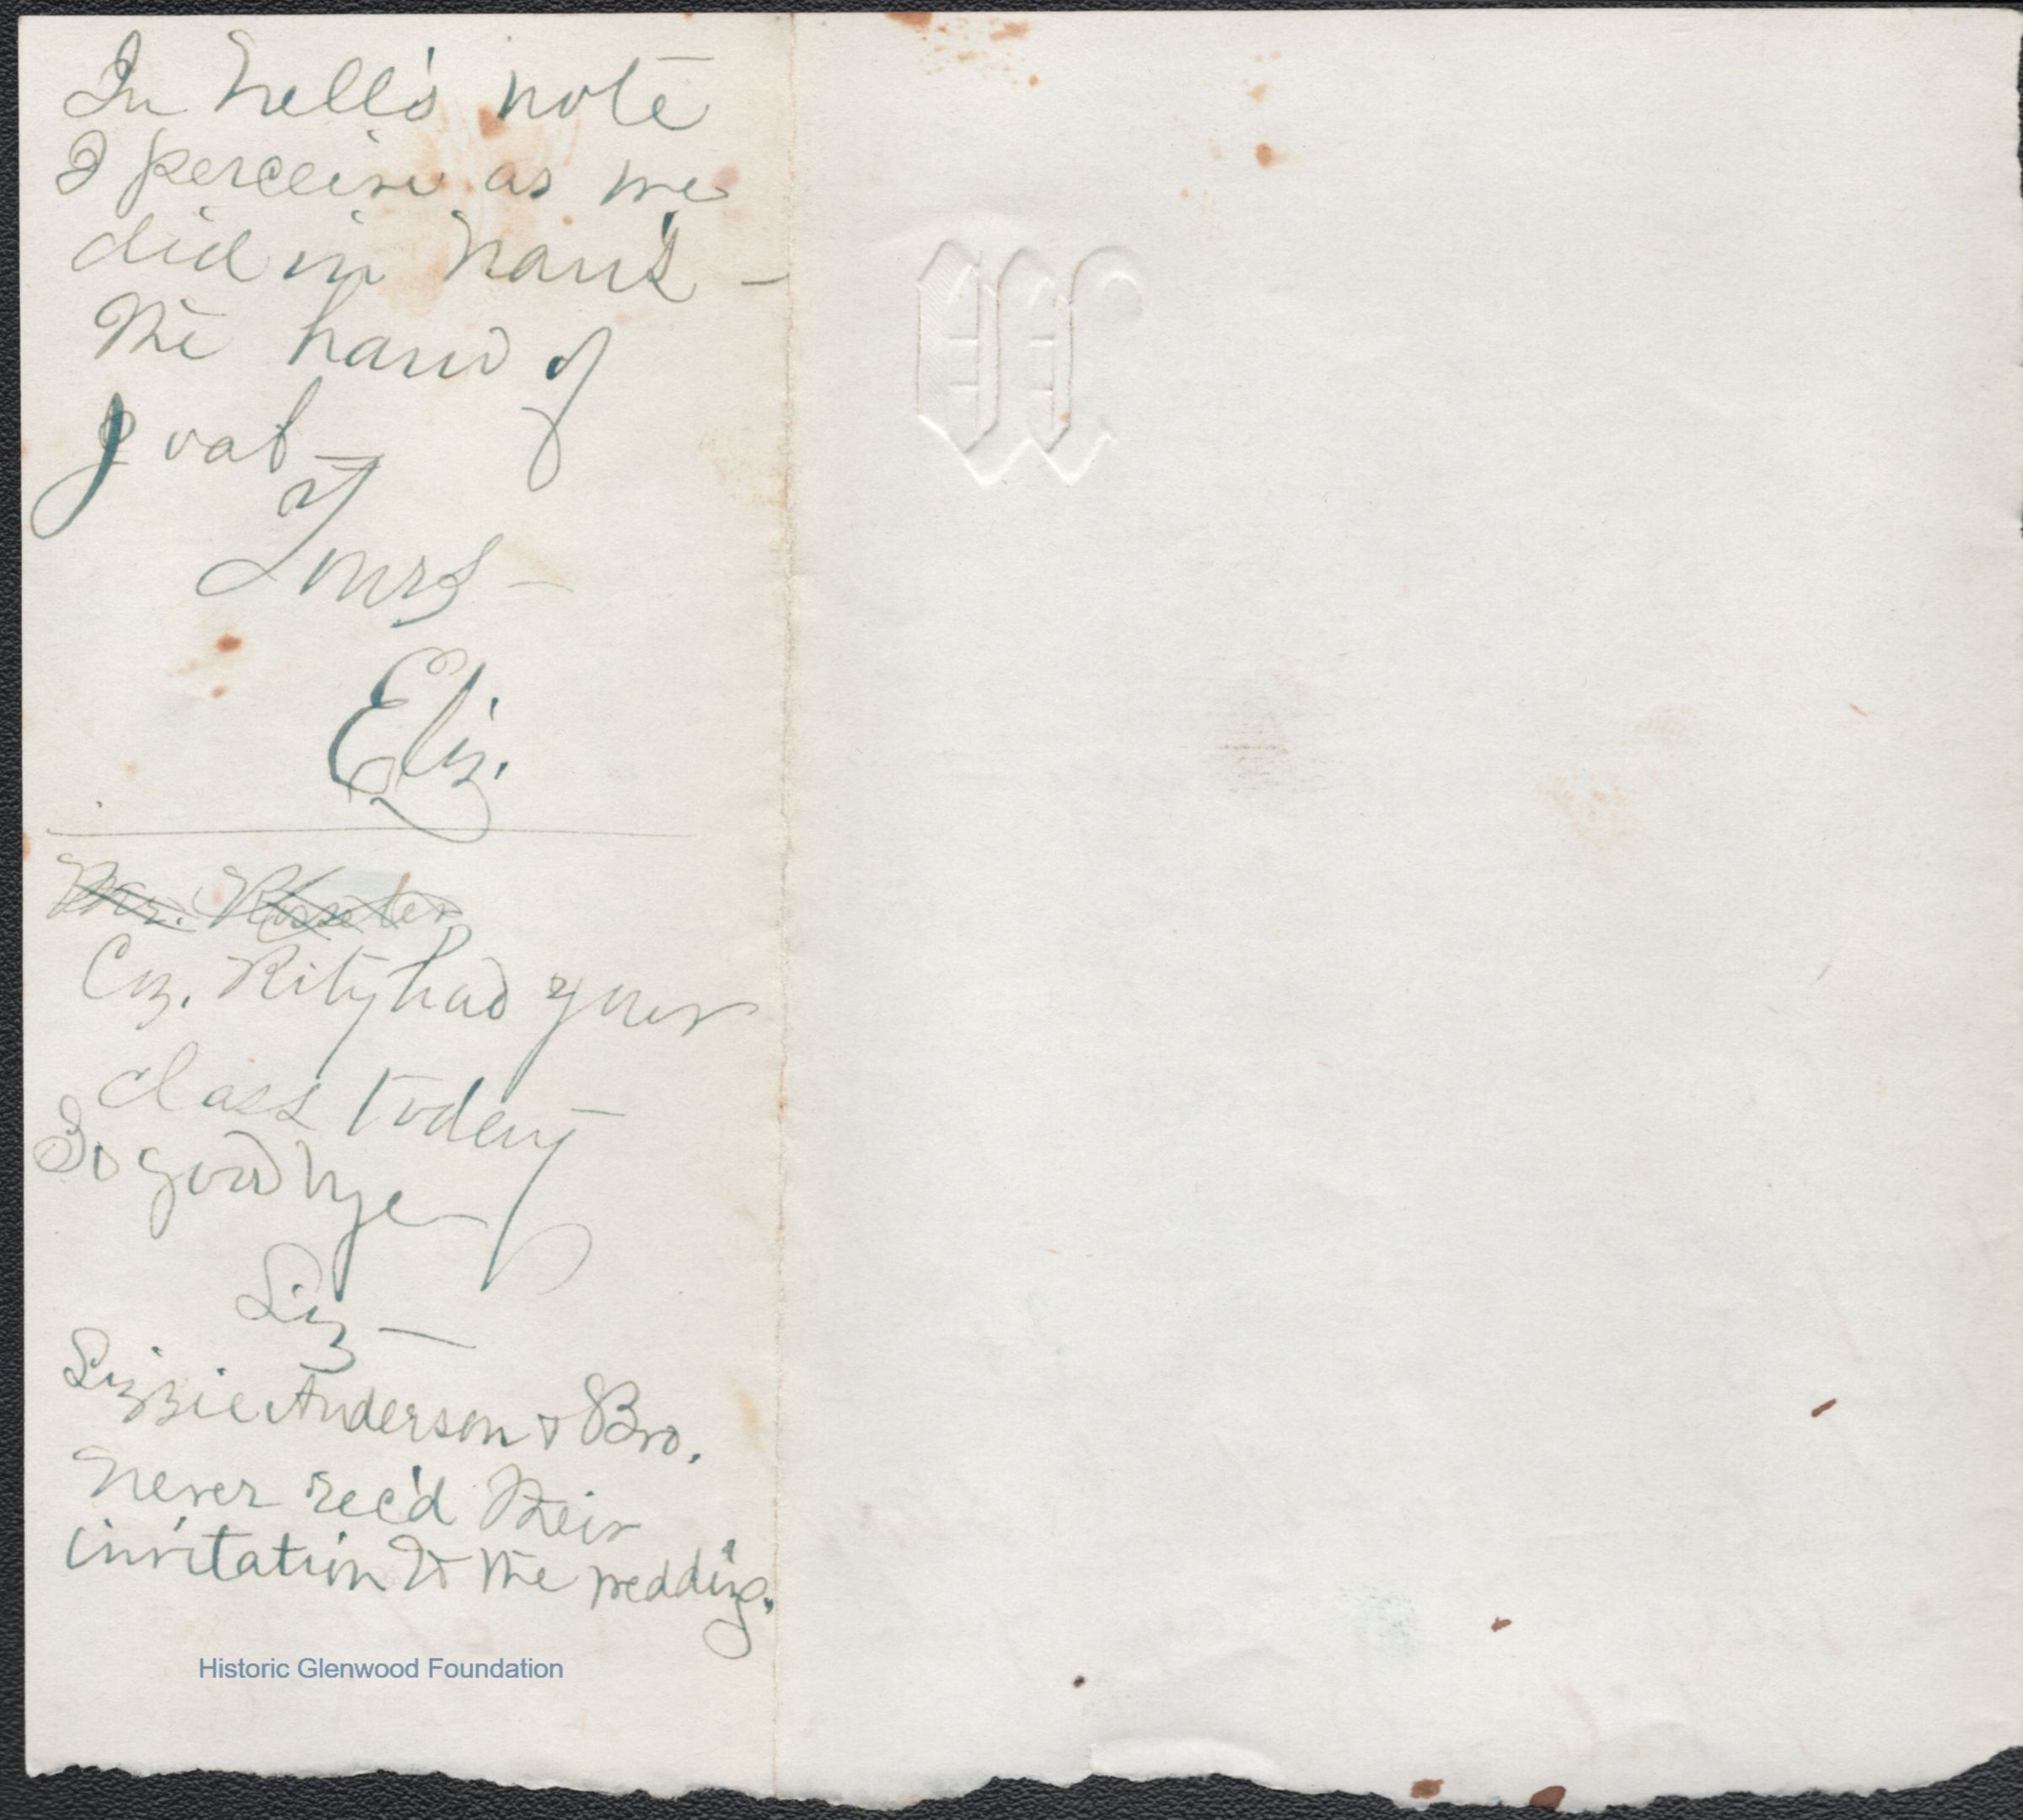 In Nell's note
I perceive as we
did in Nan's –
the hand of
Joab –
Yours –
Eliz.
Mr.
Cz. Rity had your
class today –
So goodbye
Liz –
Lizzie Anderson & Bro.
never rec'd their
invitation to the wedding.
Historic Glenwood Foundation
M